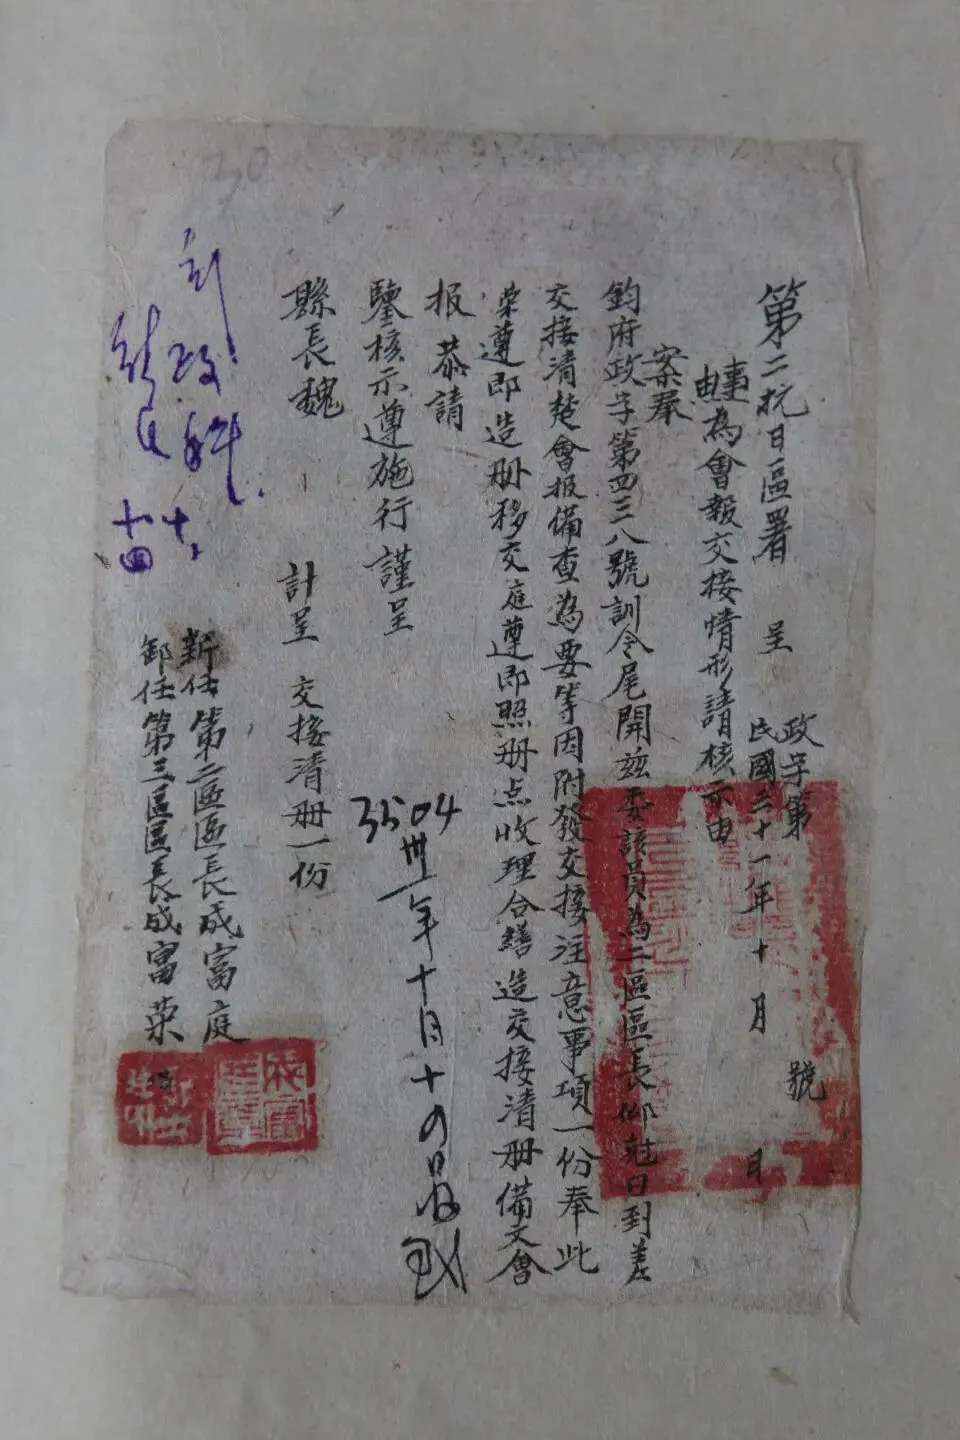 30
第二抗日區署 呈
政字第 號
民國三十一年十月 日
事由 為會報交接情形請核示由
案奉
鈞府政字第四三八號訓令尾開茲委該員為二區區長仰尅日到差
交接清楚會报備查為要等因附發交接注意事項一份奉此
荣遵即造册移交庭遵即照册点收理合繕造交接清册備文會
报恭請
鑒核示遵施行謹呈
縣長魏
計呈 交接清册一份
3504
卅一年十月十四日
新任第二區區長成富庭
卸任第三區區長成富荣
政科
十四